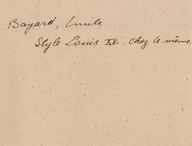 Bayard, Emile
Style Louis XVI. chez le même.